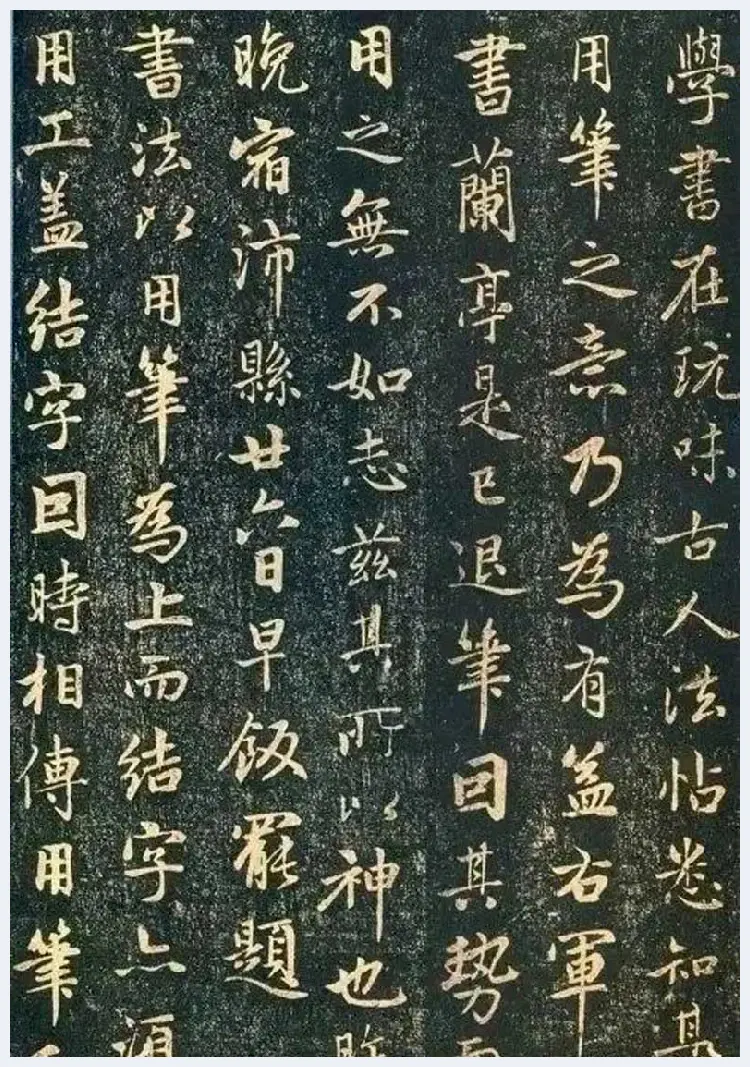 學書在玩味古人法帖悉知其
用筆之意乃為有益右軍
書蘭亭是已退筆囙其勢而
用之無不如志茲其所以神也昨
晚宿沛縣廿六日早飯罷題
書法以用筆為上而結字亦須
用工盖結字囙時相傳用筆